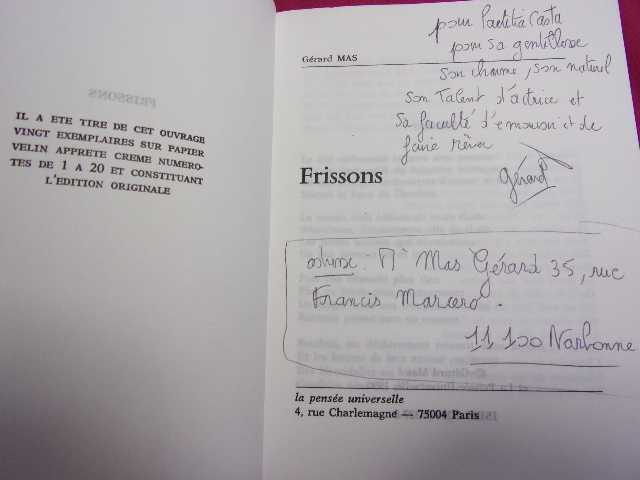 IL A ETE TIRE DE CET OUVRAGE
VINGT EXEMPLAIRES SUR PAPIER
VELIN APPRETE CREME NUMERO-
TES DE 1 A 20 ET CONSTITUANT
L'EDITION ORIGINALE
Gérard MAS
pour Laetitia Casta
pour sa gentillesse
son charme, son naturel
son talent d'actrice et
sa faculté d'émouvoir et de
faire rêver
Gérard
Frissons
adresse : Mr Mas Gérard 35, rue
Francis Marcero.
11 100 Narbonne
la pensée universelle
4, rue Charlemagne — 75004 Paris